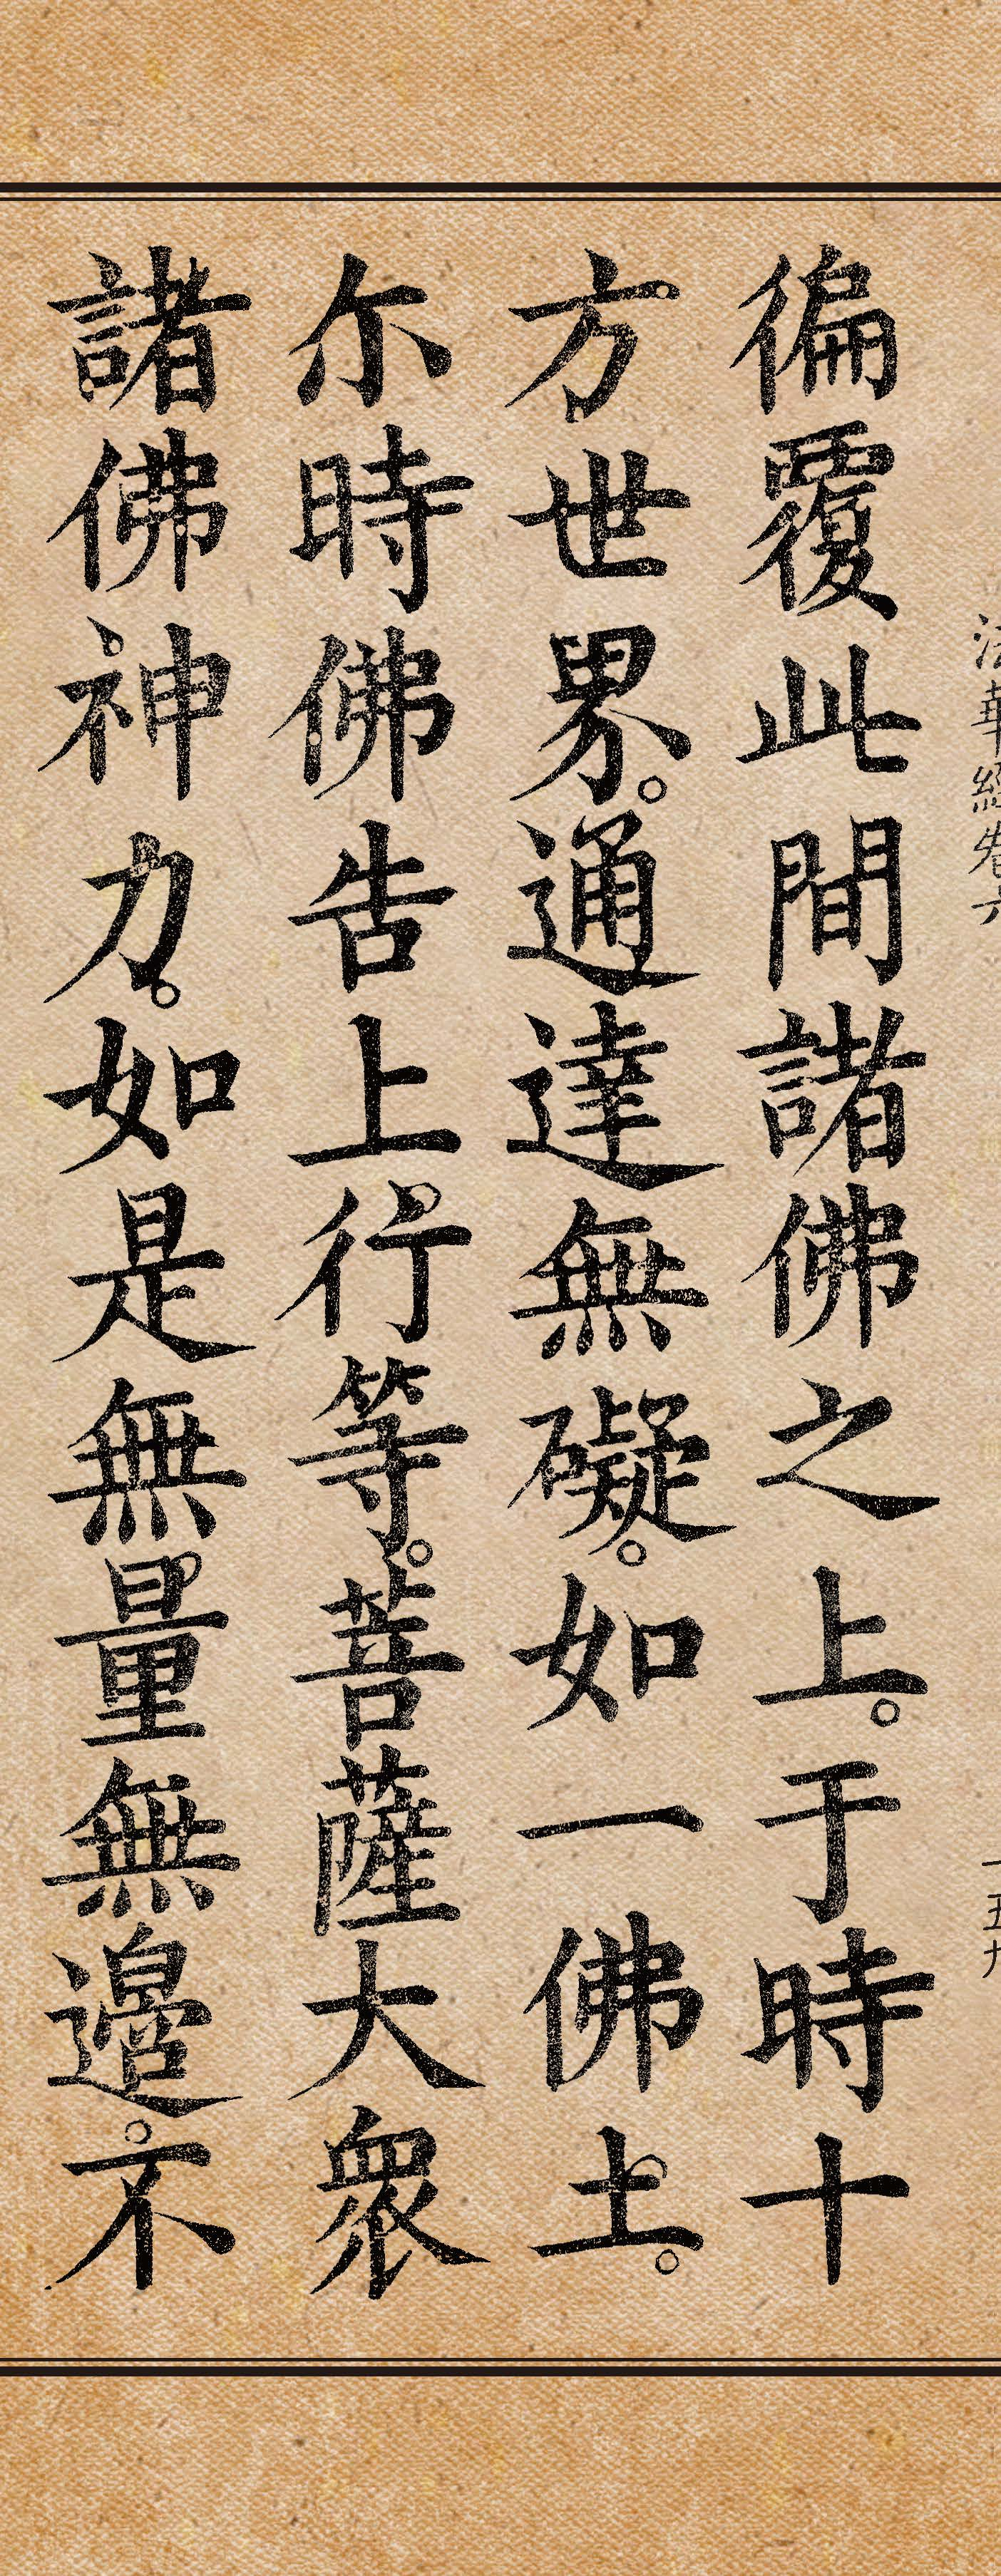 法華經卷六 一五九
徧覆此間諸佛之上。于時十
方世界。通達無礙。如一佛土。
尒時佛告上行等。菩薩大衆
諸佛神力。如是無量無邊。不